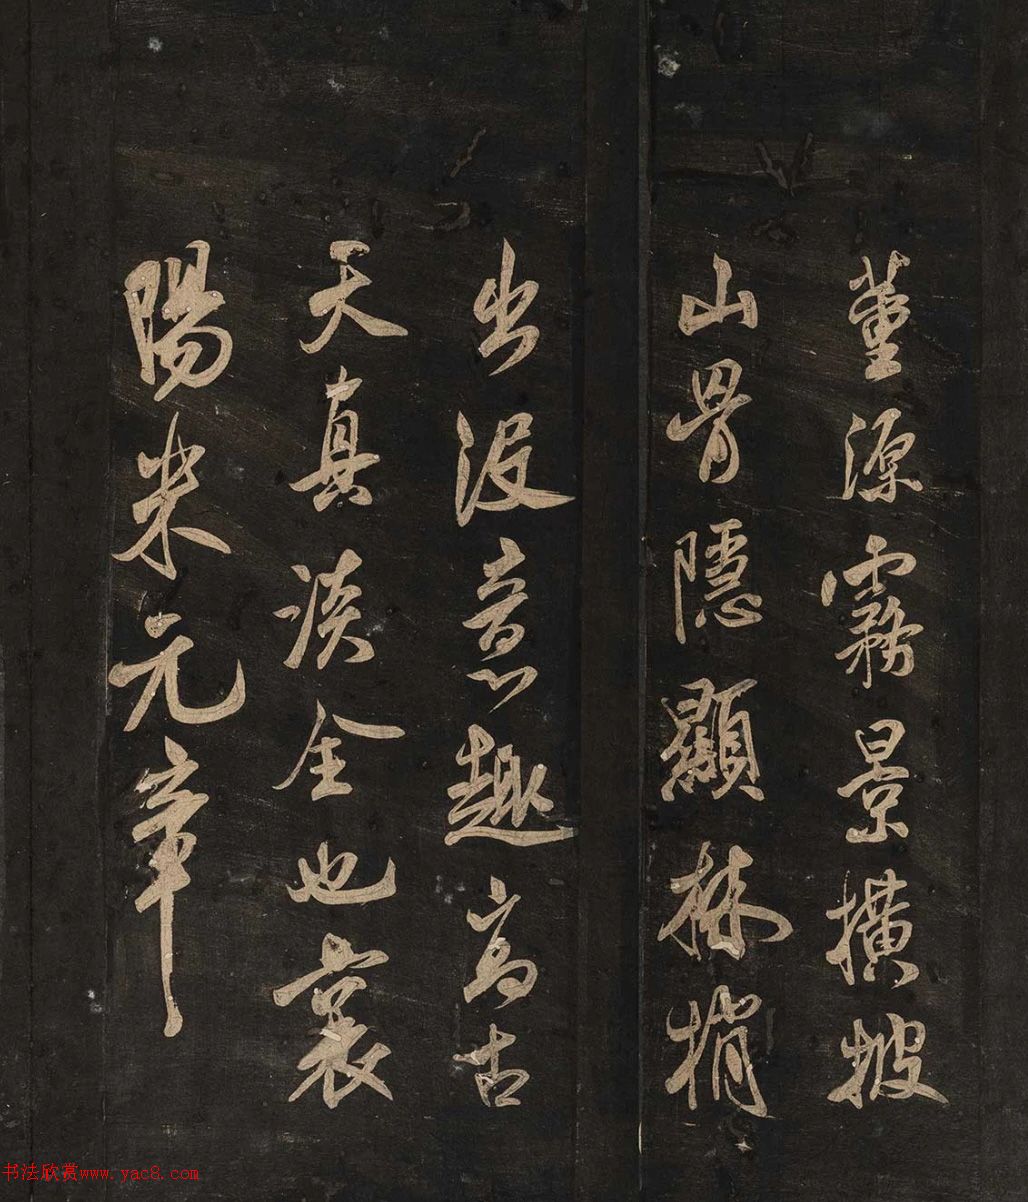 董源霧景橫披
山骨隱顯林梢
出没意趣高古
天真淡全也襄
陽米元章
书法欣赏www.yac8.com